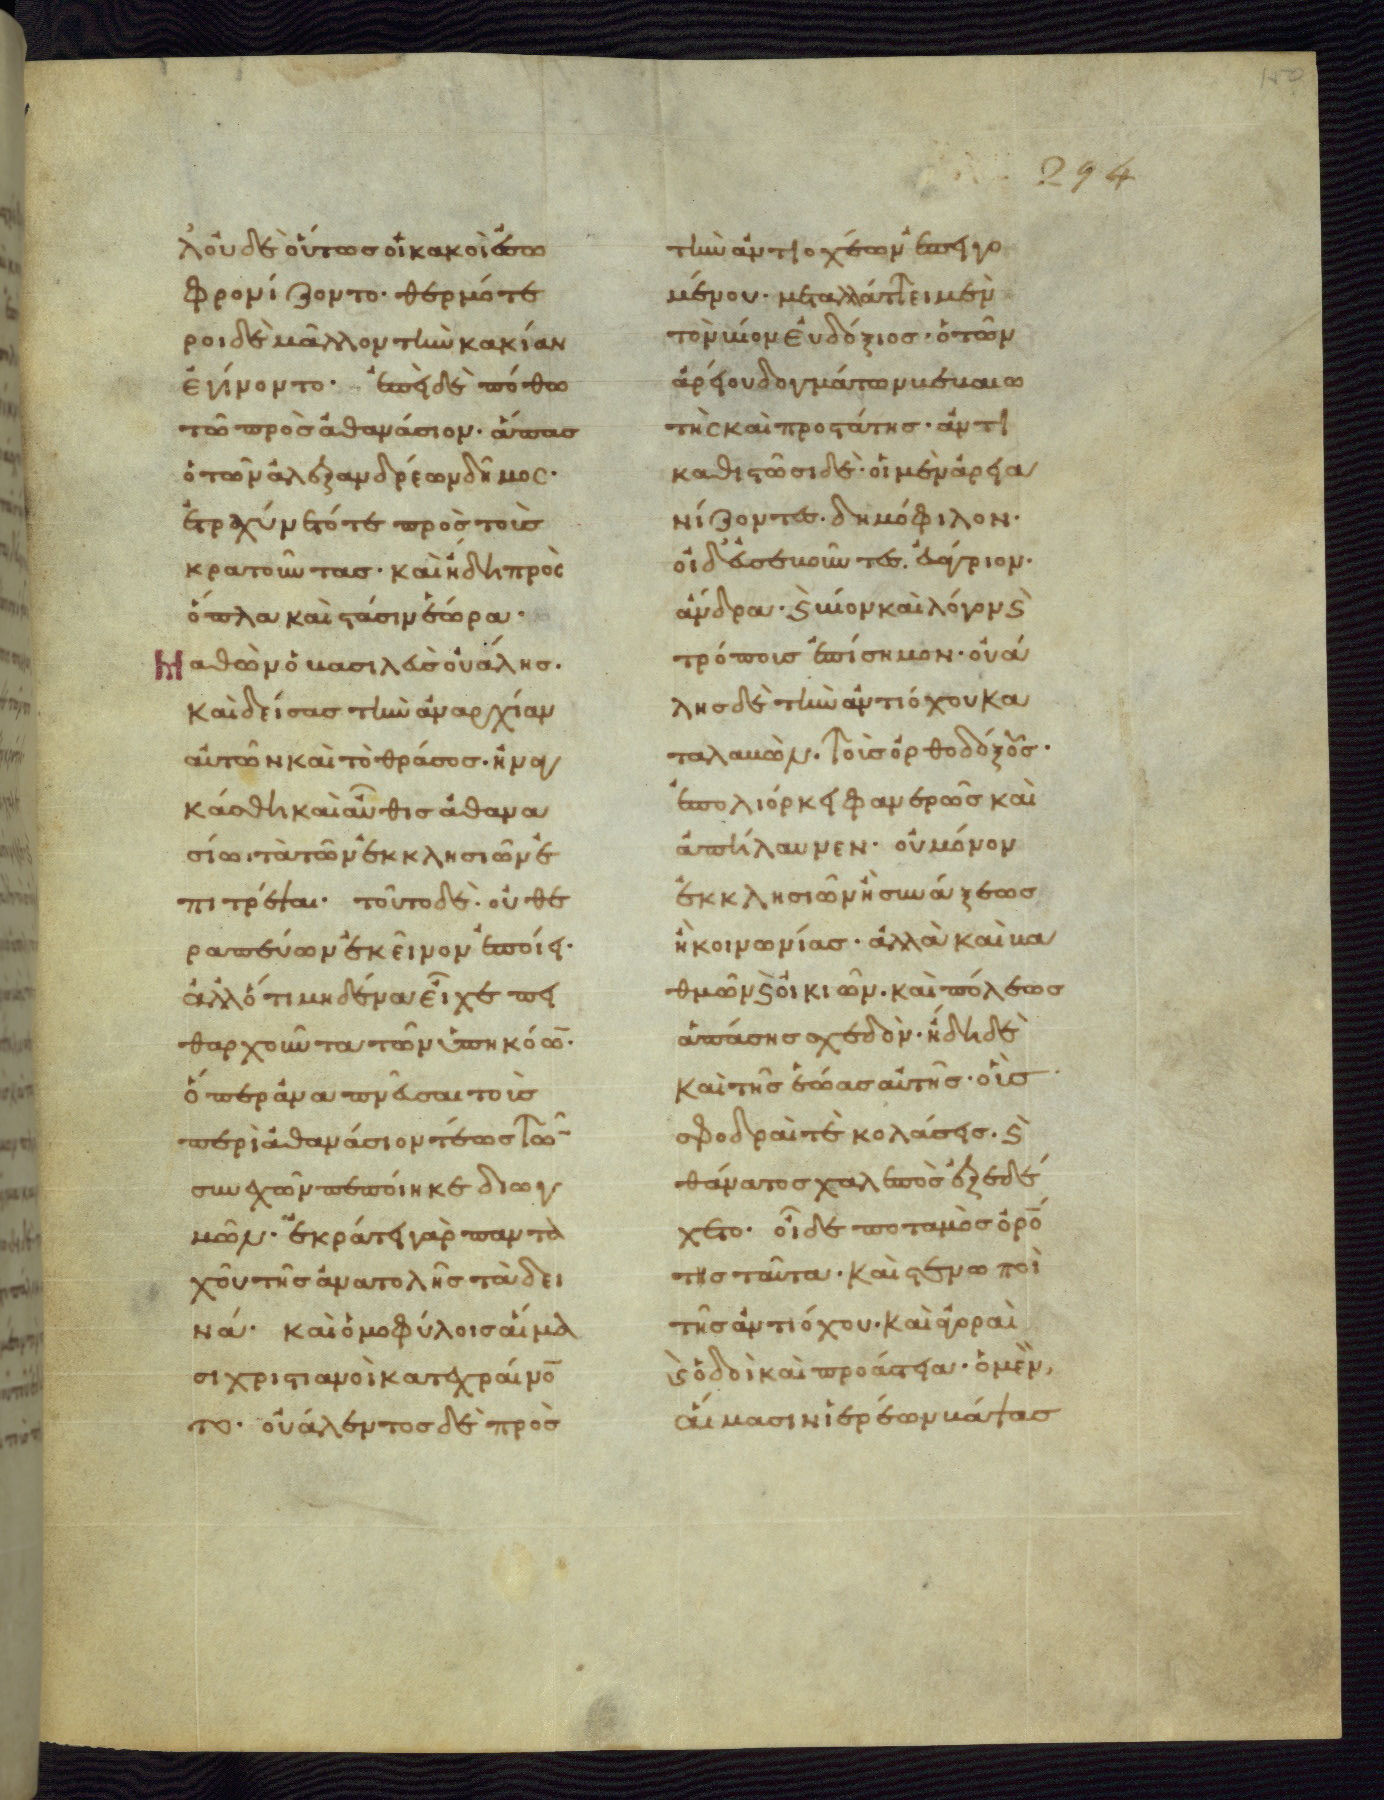 150
294
λ' οὐδὲ οὕτως οἱ κακοὶ ἐσω
φρονίζοντο· θερμότε
ροι δὲ μᾶλλον τὴν κακίαν
ἐγίνοντο· ἐπεὶ δὲ πόθω
τῶ πρὸς ἀθανάσιον· ἅπας
ὁ τῶν ἀλεξανδρέων δῆμος·
ἐτραχύνετό τε πρὸς τοὺς
κρατοῦντας· καὶ ἤδη πρὸς
ὅπλα καὶ στάσιν ἑώρα·
Μαθὼν ὁ βασιλεὺς οὐάλης·
καὶ δείσας τὴν ἀναρχίαν
αὐτῶν καὶ τὸ θράσος· ἠναγ
κάσθη καὶ αὖθις ἀθανα
σίωι τὰ τῶν ἐκκλησιῶν ἐ
πιτρέψαι· τοῦτο δὲ· οὐ θε
ραπεύων ἐκεῖνον ἐποίει·
ἀλλ' ὅτι μηδένα εἶχε πει
θαρχοῦντα τῶν ὑπηκόω̅·
ὅπερ ἀναπνεῦσαι τοῖς
περὶ ἀθανάσιον τέως τῶ̅
συνεχῶν πεποίηκε διωγ
μῶν· ἐκράτει γὰρ πανταχοῦ
τῆς ἀνατολῆς τὰ δει
νά· καὶ ὁμοφύλοις αἵμα
σι χριστιανοὶ κατεχραίνο̅
το· οὐάλεντος δὲ πρὸς
τὴν ἀντιοχέων ἐπειγο
μένου· μεταλλάττει μὲν
τὸν βίον εὐδόξιος· ὁ τῶν
ἀρείου δογμάτων βεβαιω
τὴς καὶ προστάτης· ἀντι
καθιστῶσι δὲ· οἱ μὲν ἀρεια
νίζοντες· δημόφιλον·
οἱ δ' εὐσεβοῦντες· εὐάγριον·
ἄνδρα· ϛ βίον καὶ λόγον ϛ
τρόποις ἐπίσημον· οὐά
λης δὲ τὴν ἀντιόχου κα
ταλαβὼν· τοὺς ὀρθοδόξους·
ἐπολιόρκει φανερῶς καὶ
ἀπήλαυνεν· οὐ μόνον
ἐκκλησιῶν ἢ συνάξεως
ἢ κοινωνίας· ἀλλὰ καὶ βα
θμῶν ϛ οἰκιῶν· καὶ πόλεως
ἁπάσης σχεδὸν· ἤδη δὲ
καὶ τῆς ἑώας αὐτῆς· οὓς
σφοδραί τε κολάσεις· ϛ
θάνατος χαλεπὸς ἐξεδέ
χετο· οἶδε ποταμὸς ὀρό̅
της ταῦτα· καὶ στένωποὶ
τῆς ἀντιόχου· καὶ ἀγοραὶ
ϛ ὁδοὶ καὶ προάστεια· ὁ μὲν,
αἵμασιν ἱερέων βάψας